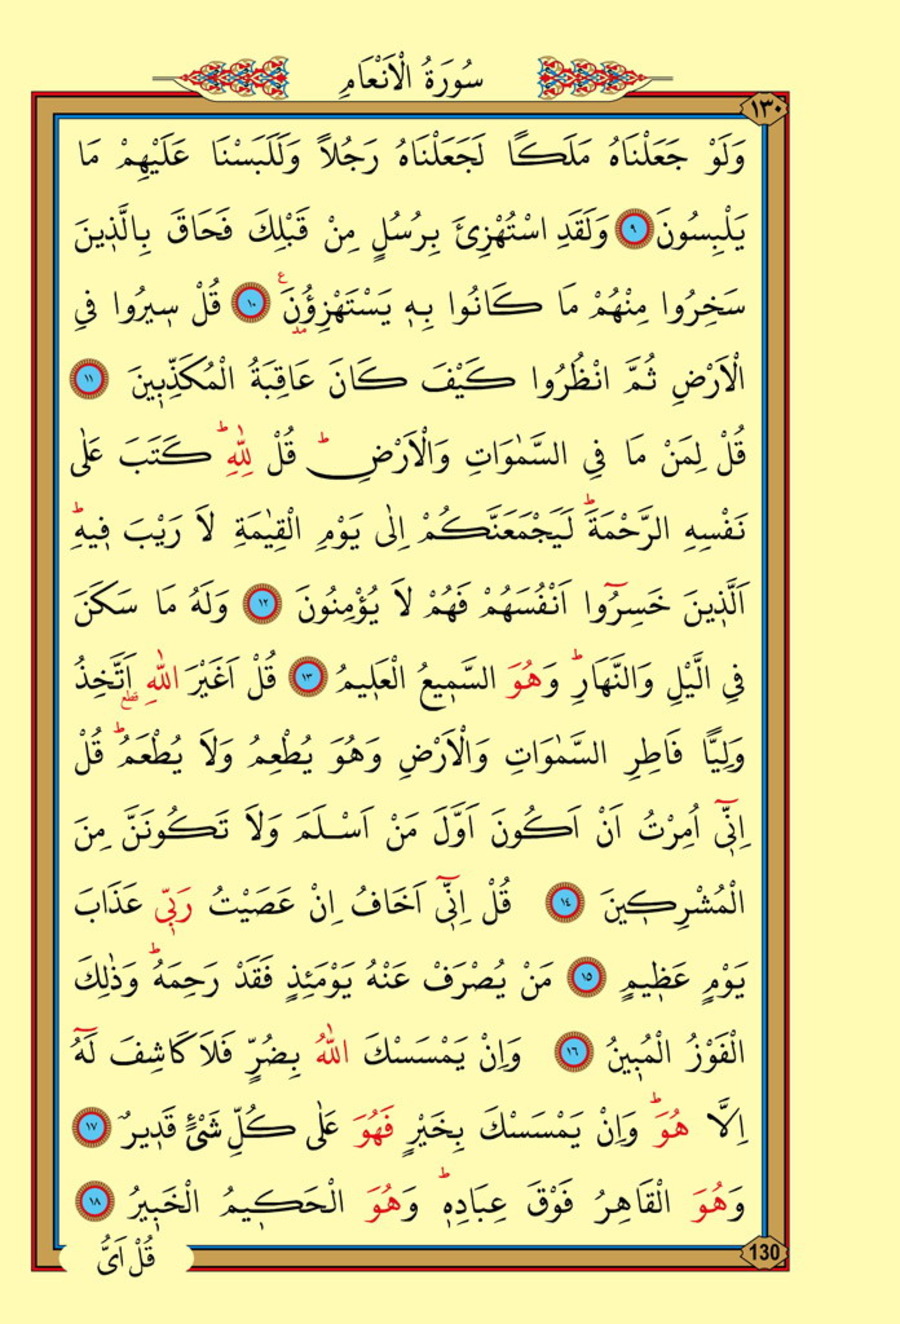 سُورَةُ الْاَنْعَامِ
١٣٠
وَلَوْ جَعَلْنَاهُ مَلَكًا لَجَعَلْنَاهُ رَجُلاً وَلَلَبَسْنَا عَلَيْهِمْ مَا
يَلْبِسُونَ ٩ وَلَقَدِ اسْتُهْزِئَ بِرُسُلٍ مِنْ قَبْلِكَ فَحَاقَ بِالَّذ۪ينَ
سَخِرُوا مِنْهُمْ مَا كَانُوا بِه۪ يَسْتَهْزِؤُ۫نَ ع ١٠ قُلْ س۪يرُوا فِي
الْاَرْضِ ثُمَّ انْظُرُوا كَيْفَ كَانَ عَاقِبَةُ الْمُكَذِّب۪ينَ ١١
قُلْ لِمَنْ مَا فِي السَّمٰوَاتِ وَالْاَرْضِۜ قُلْ لِلّٰهِۜ كَتَبَ عَلٰى
نَفْسِهِ الرَّحْمَةَۜ لَيَجْمَعَنَّكُمْ اِلٰى يَوْمِ الْقِيٰمَةِ لَا رَيْبَ ف۪يهِۜ
اَلَّذ۪ينَ خَسِرُٓوا اَنْفُسَهُمْ فَهُمْ لَا يُؤْمِنُونَ ١٢ وَلَهُ مَا سَكَنَ
فِي الَّيْلِ وَالنَّهَارِۜ وَهُوَ السَّم۪يعُ الْعَل۪يمُ ١٣ قُلْ اَغَيْرَ اللّٰهِ اَتَّخِذُ
وَلِيًّا فَاطِرِ السَّمٰوَاتِ وَالْاَرْضِ وَهُوَ يُطْعِمُ وَلَا يُطْعَمُۜ قُلْ
اِنّ۪ٓي اُمِرْتُ اَنْ اَكُونَ اَوَّلَ مَنْ اَسْلَمَ وَلَا تَكُونَنَّ مِنَ
الْمُشْرِك۪ينَ ١٤ قُلْ اِنّ۪ٓي اَخَافُ اِنْ عَصَيْتُ رَبّ۪ي عَذَابَ
يَوْمٍ عَظ۪يمٍ ١٥ مَنْ يُصْرَفْ عَنْهُ يَوْمَئِذٍ فَقَدْ رَحِمَهُۜ وَذٰلِكَ
الْفَوْزُ الْمُب۪ينُ ١٦ وَاِنْ يَمْسَسْكَ اللّٰهُ بِضُرٍّ فَلَا كَاشِفَ لَهُٓ
اِلَّا هُوَۜ وَاِنْ يَمْسَسْكَ بِخَيْرٍ فَهُوَ عَلٰى كُلِّ شَيْءٍ قَد۪يرٌ ١٧
وَهُوَ الْقَاهِرُ فَوْقَ عِبَادِه۪ۜ وَهُوَ الْحَك۪يمُ الْخَب۪يرُ ١٨
130
قُلْ اَيُّ